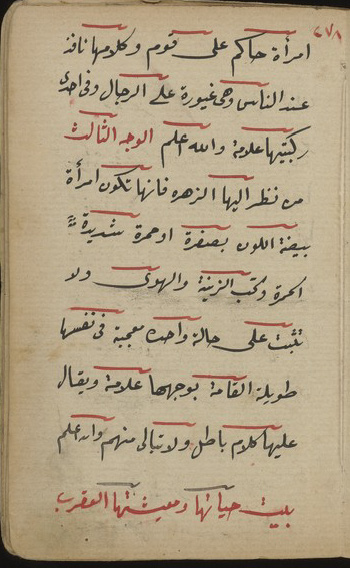 ٢٧٨
امرأة حاكم على قوم وكلامها نافذ
عند الناس وهى غيورة على الرجال وفى احدى
ركبتيها علامة والله اعلم الوجه الثالث
من نظر اليها الزهره فانها تكون امرأة
بيضة اللون بصفرة او حمرة شديدة
الحمرة وتحب الزينة والهوى ولا
تثبت على حالة واحدة معجبة فى نفسها
طويلة القامة بوجهها علامة ويقال
عليها كلام باطل ولا تبالى منهم والله اعلم
بيت حياتها ومعيشتها العقرب